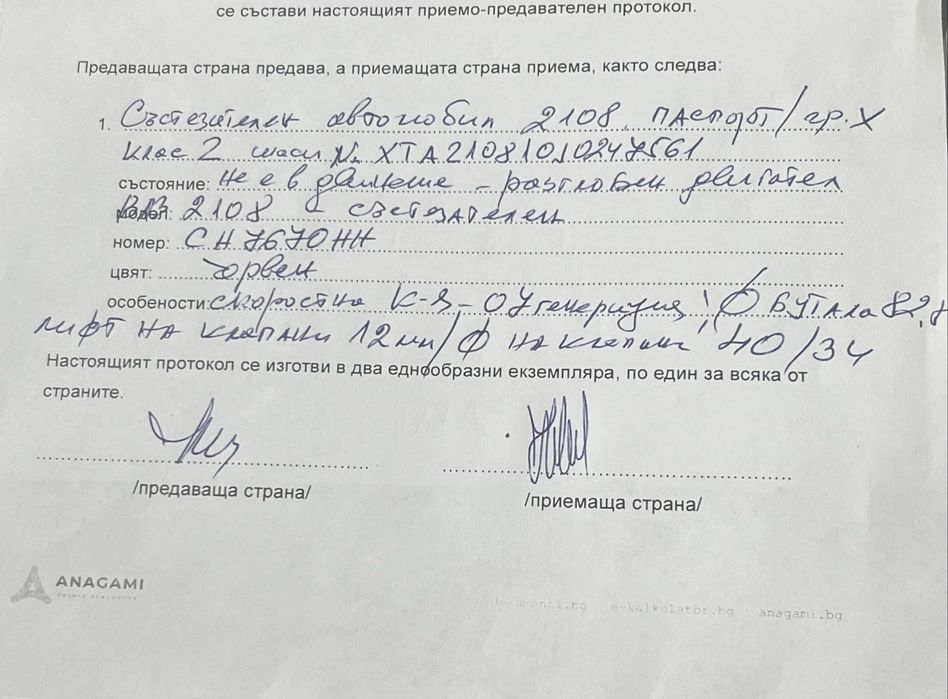 се състави настоящият приемо-предавателен протокол.
Предаващата страна предава, а приемащата страна приема, както следва:
1. Състезателен автомобил 2108 паспорт/гр. X
клас 2 шаси № XTA210810J0247561
състояние: не е в движение – разглобен двигател
модел: ВАЗ 2108 – състезателен
номер: СН7670НН
цвят: червен
особености: скоростна К-я – 07 хомологация ! Ф бутала 82,
лифт на клапани 12мм/Ф на клапани 40/34
Настоящият протокол се изготви в два еднообразни екземпляра, по един за всяка от
страните.
/предаваща страна/
/приемаща страна/
ANAGAMI
e-kalkulator.bg · anagami.bg